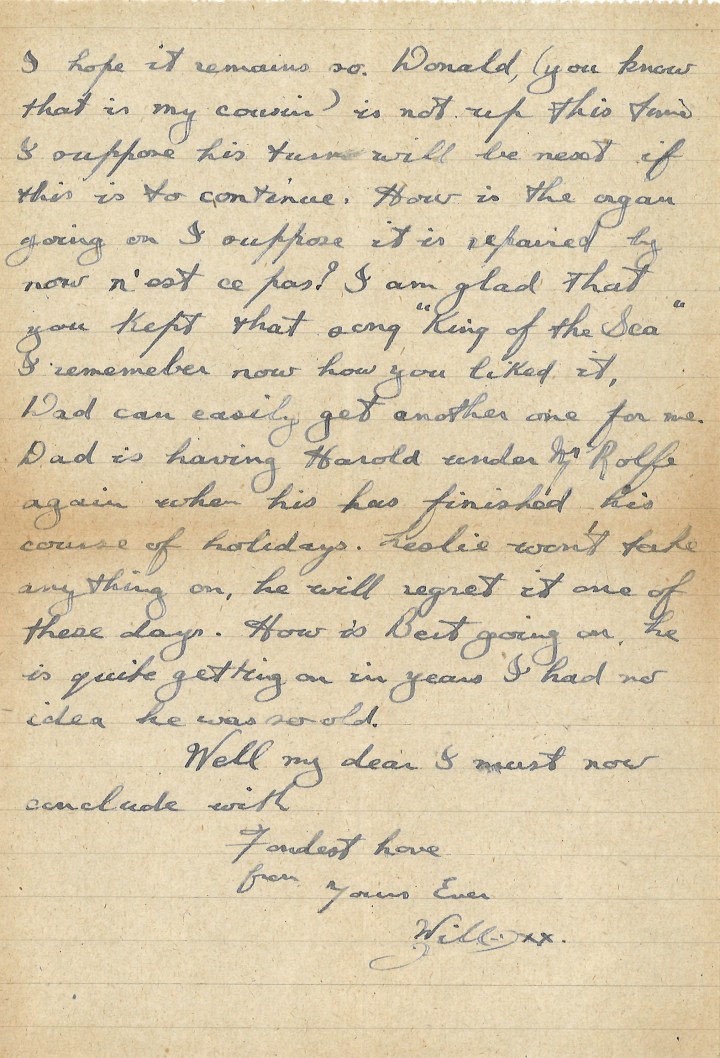 I hope it remains so. Donald, (you know
that is my cousin) is not up this time
I suppose his turn will be next if
this is to continue. How is the organ
going on I suppose it is repaired by
now n'est ce pas? I am glad that
you kept that song "King of the Sea"
I rememeber now how you liked it,
Dad can easily get another one for me.
Dad is having Harold under Mr Rolfe
again when his has finished his
course of holidays. Leslie won't take
anything on, he will regret it one of
these days. How is Bert going on, he
is quite getting on in years I had no
idea he was so old.
Well my dear I must now
conclude with
Fondest love
from
Yours Ever
Will xx.